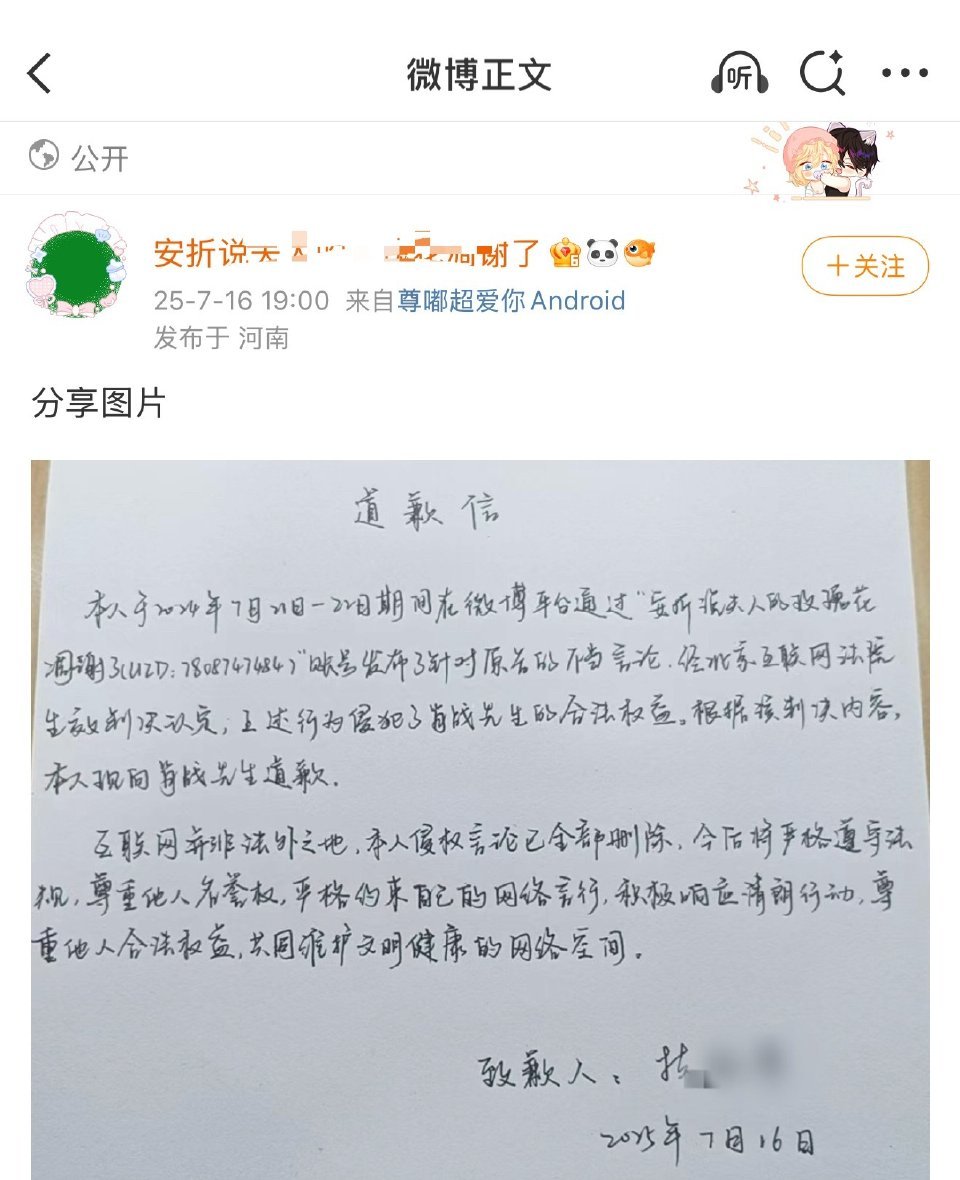 微博正文
听
公开
安折说夫 凋谢了
+关注
25-7-16 19:00 来自尊嘟超爱你Android
发布于 河南
分享图片
道歉信
本人于2024年7月21日-22日期间在微博平台通过"安折说夫人的玫瑰花
凋谢了(UID:7808747484)"账号发布了针对原告的不当言论,经北京互联网法院
生效判决认定,上述行为侵犯了肖战先生的合法权益。根据该判决内容,
本人现向肖战先生道歉.
互联网并非法外之地,本人侵权言论已全部删除,今后将严格遵守法
规,尊重他人名誉权,严格约束自己的网络言行,积极响应清朗行动,尊
重他人合法权益,共同维护文明健康的网络空间。
致歉人:
2025年7月16日